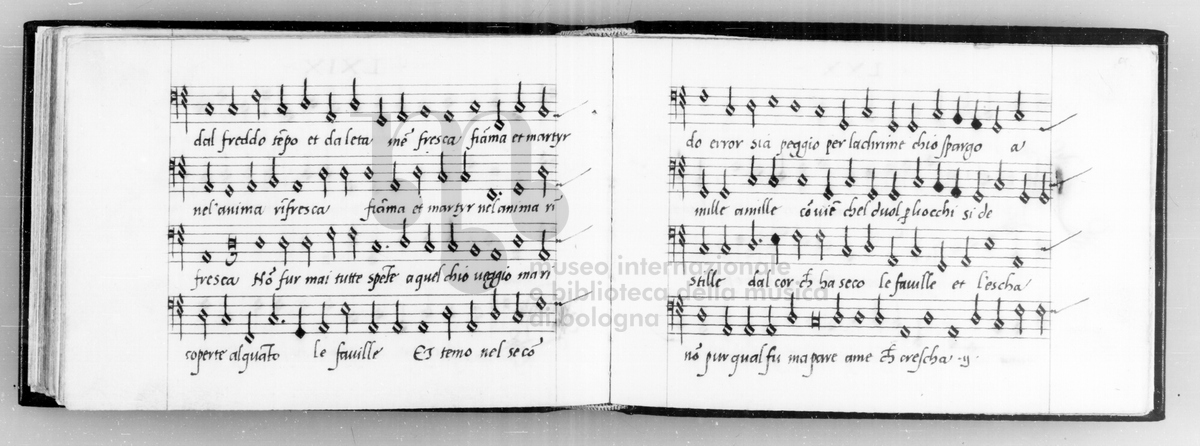 dal freddo tēpo et da leta mē fresca fiāma et martyr
nel'anima rīfresca fiāma et martyr nel'anima rī
fresca Nō fur mai tutte spēte a quel ch'io veggio ma ri
coperte alquāto le faville Et temo nel secō
do error sia peggio per lachrime ch'io spargo a
mille a mille cōviē chel duol p liocchi si de
stille dal cor ch ha seco le faville et l'escha
nō pur qual fu ma pare a me ch crescha .ij.
museo internazionale
e biblioteca della musica
di bologna